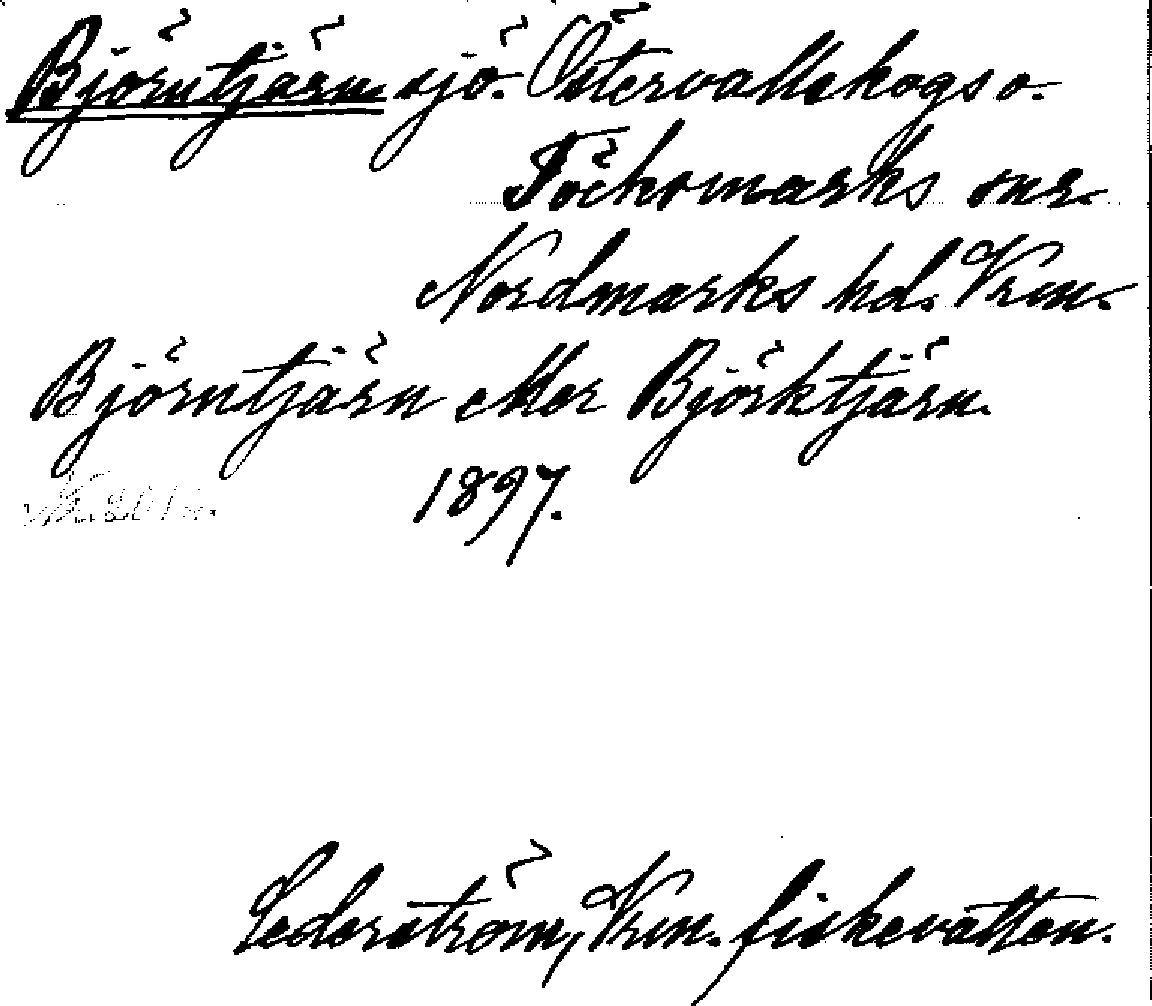 Björntjärn sjö. Östervallskogs o.
Töcksmarks snr
Nordmarks hd. Vrm.
Björntjärn eller Björktjärn.
1897.
Cederström, Vrm. fiskevatten.